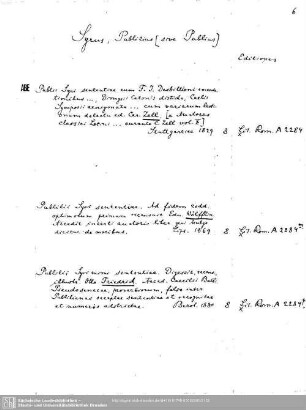 6
Syrus, Publicus (sive Publius)
Editiones
Publii Syri sententiae cum F. J. Desbillonii emenda-
tionibus ..., Dionysii Catonis disticha, Caelii
Symposii aenigmata ... cum variarum lecti-
onum delectu ed. Car. Zell. [= Auctores
classici Latini ... curante C. Zell vol. X]
Stuttgartiae 1829 8 Lit. Rom. A 2284
Publilii Syri sententiae. Ad fidem codd.
optimorum primum recensuit Edu. Wölfflin
Accedit incerti auctoris liber qui vulgo
dicitur de moribus.
Lips. 1869 8 Lit. Rom. A 2284
Publilii Syri mimi sententiae. Digessit, recens.,
illustr. Otto Friedrich. Acced. Caecilii Balbi,
Pseudosenecae, proverbiorum, falso inter
Publilianas receptae sententiae et recognitae
et numeris adstrictae. Berol. 1880 8 Lit. Rom. A 2284